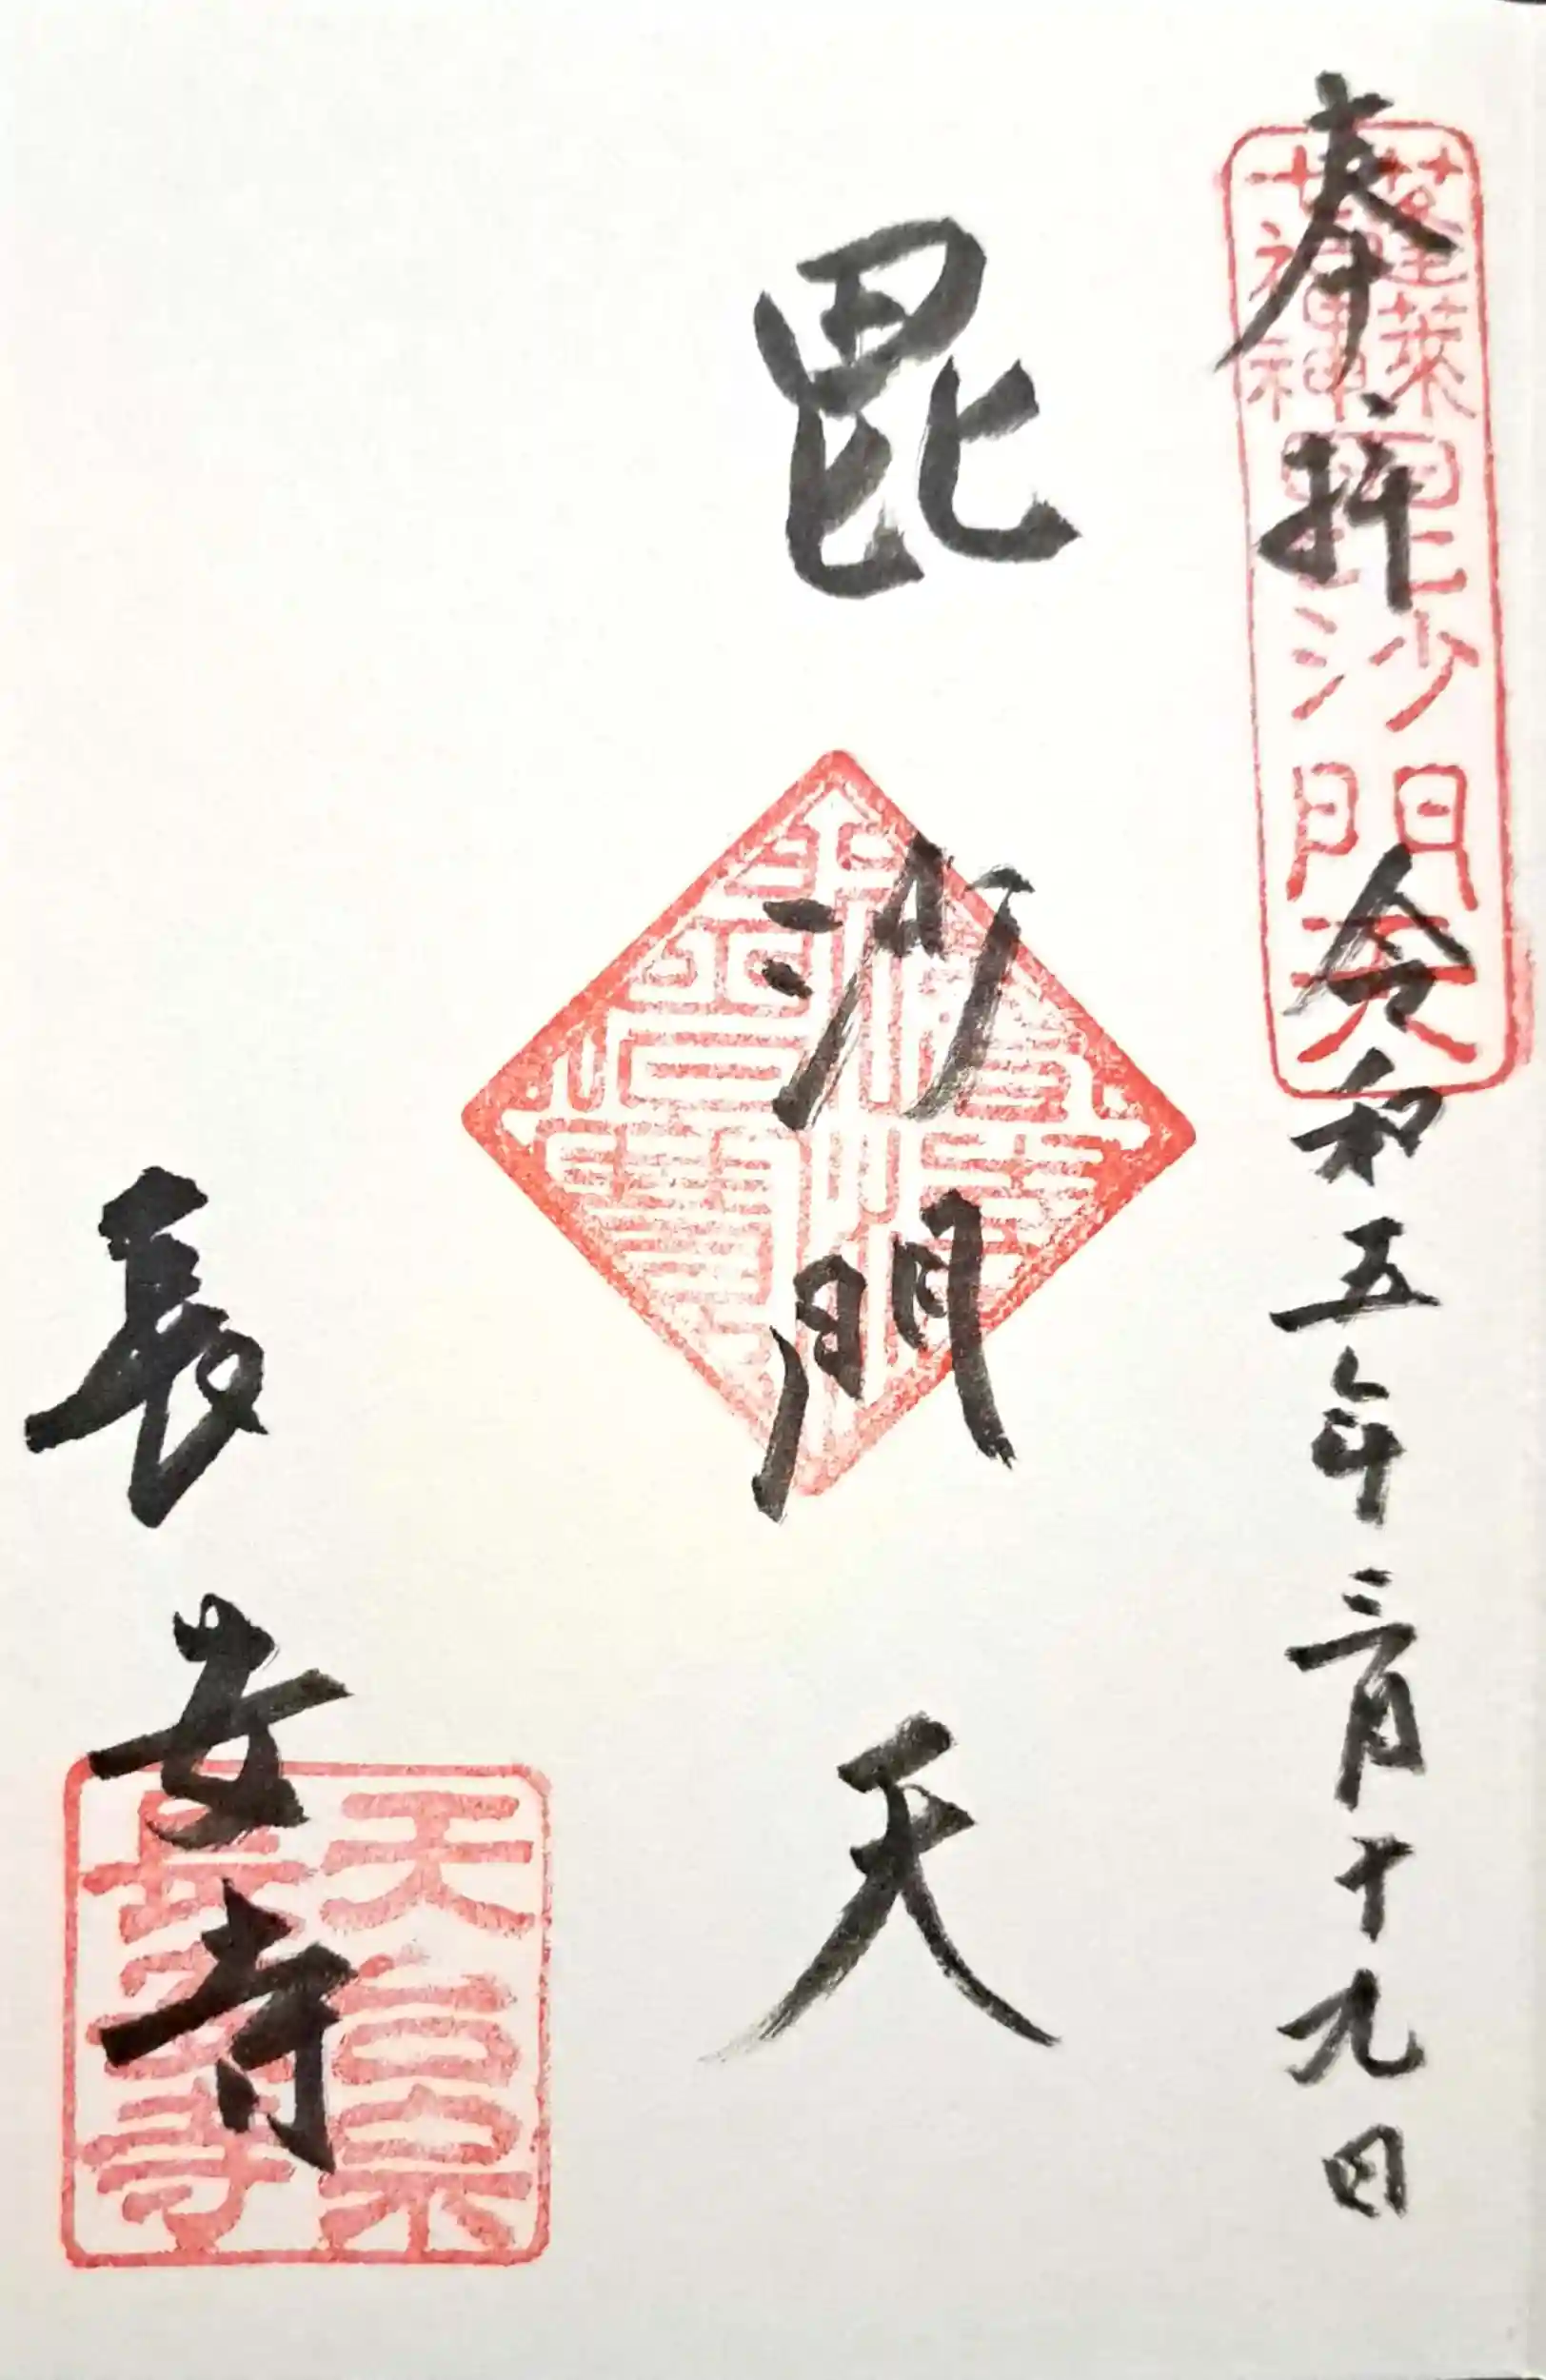 奉拝 令和五年三月十九日
蓬莱
七福神
毘沙門天
毘沙門天
長安寺
天台宗
長安寺